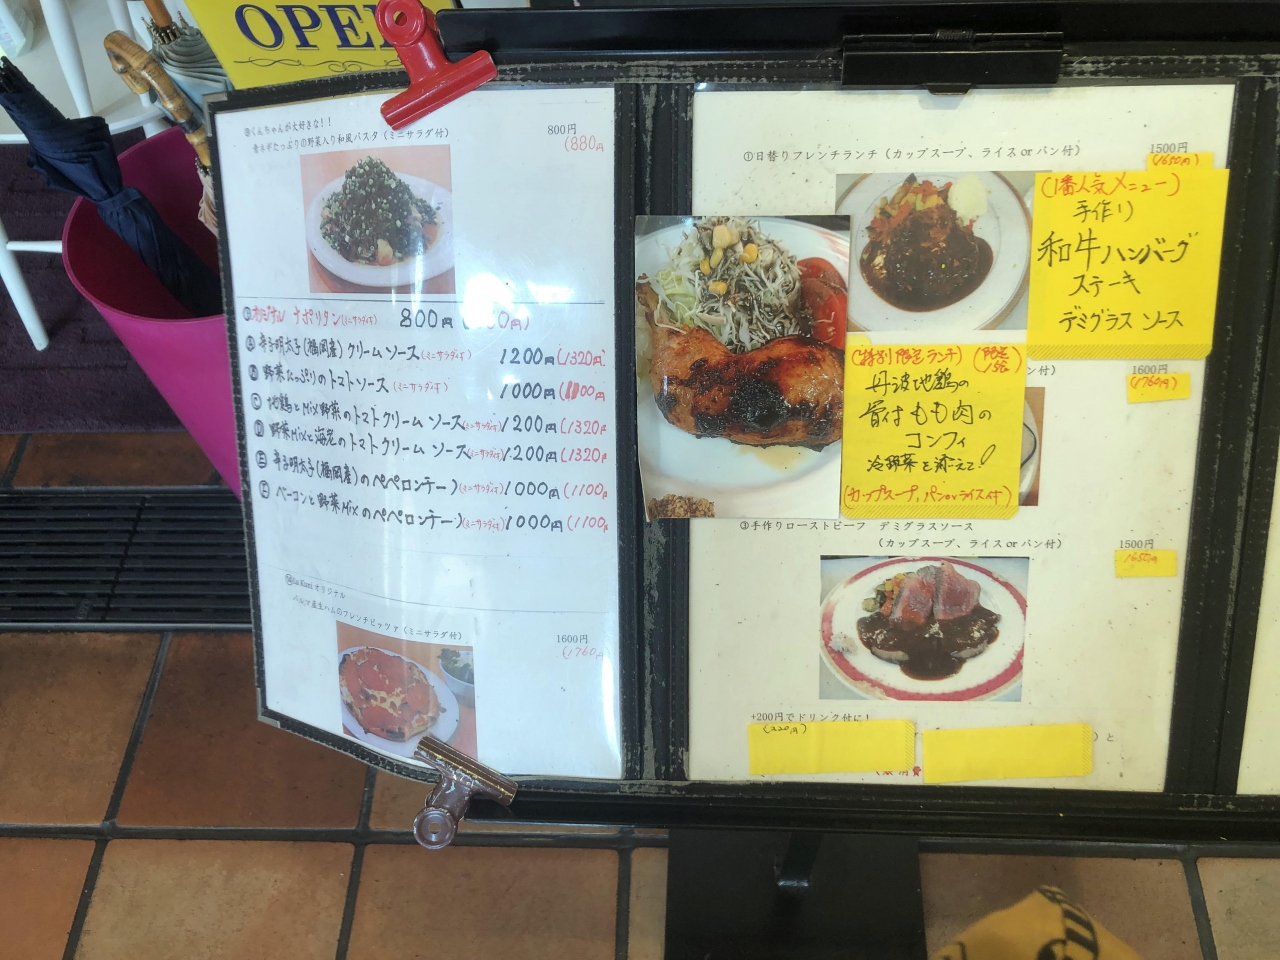 OPEN
くんちゃんが大好きな！！
青ネギたっぷりの野菜入り和風パスタ（ミニサラダ付）
800円
(880円
オリジナル ナポリタン(ミニサラダ付) 800円
Ⓐ 辛子明太子(福岡産) クリームソース(ミニサラダ付) 1200円(1320円)
Ⓑ 野菜たっぷりのトマトソース (ミニサラダ付) 1000円
Ⓒ 地鶏とMix野菜のトマトクリームソース(ミニサラダ付) 1200円(1320円
Ⓓ 野菜Mixと海老のトマトクリームソース(ミニサラダ付) 1200円(1320円
Ⓔ 辛子明太子(福岡産)のペペロンチーノ(ミニサラダ付) 1000円(1100円
Ⓕ ベーコンと野菜Mixのペペロンチーノ(ミニサラダ付) 1000円(1100円
オリジナル
パルマ産生ハムのフレンチピッツァ（ミニサラダ付）
1600円
(1760円
①日替りフレンチランチ（カップスープ、ライスorパン付）
1500円
(1650円)
(1番人気メニュー)
手作り
和牛ハンバーグ
ステーキ
デミグラスソース
(特別限定ランチ) (限定
丹波地鶏の
骨付もも肉の
コンフィ
冷野菜を添えて!
(カップスープ,パンorライス付)
ン付）
1600円
(1760円)
③手作りローストビーフ デミグラスソース
（カップスープ、ライスorパン付）
1500円
1650円
+200円でドリンク付に！
(220円)
）と
消費